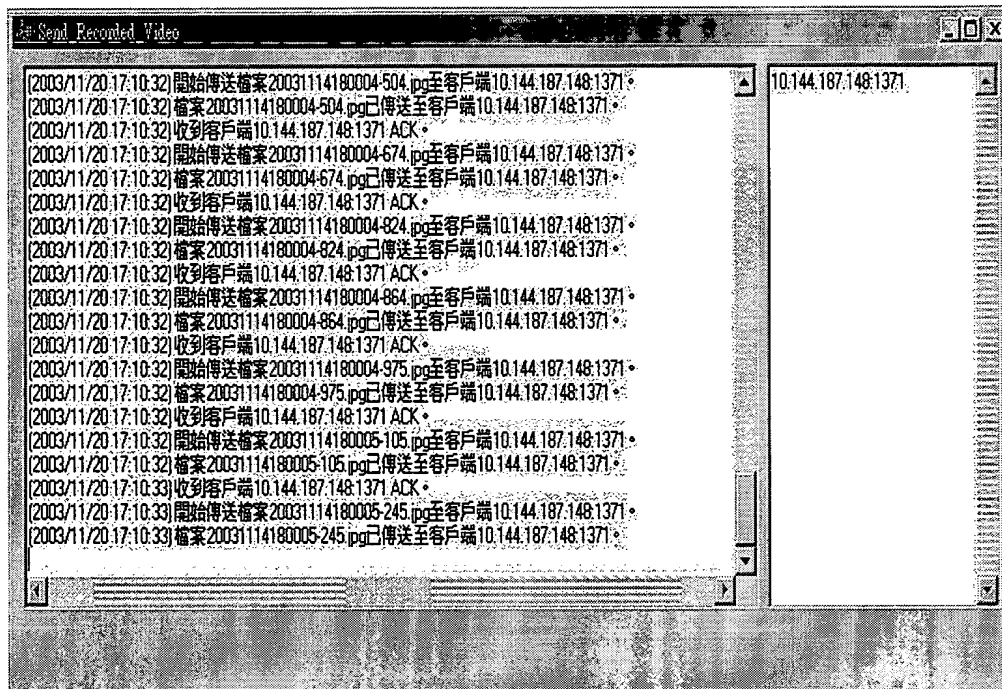 Send_Recorded_Video
[2003/11/20 17:10:32]開始傳送檔案20031114180004-504.jpg至客戶端10.144.187.148:1371。
[2003/11/20 17:10:32]檔案20031114180004-504.jpg已傳送至客戶端10.144.187.148:1371。
[2003/11/20 17:10:32]收到客戶端10.144.187.148:1371 ACK。
[2003/11/20 17:10:32]開始傳送檔案20031114180004-674.jpg至客戶端10.144.187.148:1371。
[2003/11/20 17:10:32]檔案20031114180004-674.jpg已傳送至客戶端10.144.187.148:1371。
[2003/11/20 17:10:32]收到客戶端10.144.187.148:1371 ACK。
[2003/11/20 17:10:32]開始傳送檔案20031114180004-824.jpg至客戶端10.144.187.148:1371。
[2003/11/20 17:10:32]檔案20031114180004-824.jpg已傳送至客戶端10.144.187.148:1371。
[2003/11/20 17:10:32]收到客戶端10.144.187.148:1371 ACK。
[2003/11/20 17:10:32]開始傳送檔案20031114180004-864.jpg至客戶端10.144.187.148:1371。
[2003/11/20 17:10:32]檔案20031114180004-864.jpg已傳送至客戶端10.144.187.148:1371。
[2003/11/20 17:10:32]收到客戶端10.144.187.148:1371 ACK。
[2003/11/20 17:10:32]開始傳送檔案20031114180004-975.jpg至客戶端10.144.187.148:1371。
[2003/11/20 17:10:32]檔案20031114180004-975.jpg已傳送至客戶端10.144.187.148:1371。
[2003/11/20 17:10:32]收到客戶端10.144.187.148:1371 ACK。
[2003/11/20 17:10:32]開始傳送檔案20031114180005-105.jpg至客戶端10.144.187.148:1371。
[2003/11/20 17:10:32]檔案20031114180005-105.jpg已傳送至客戶端10.144.187.148:1371。
[2003/11/20 17:10:33]收到客戶端10.144.187.148:1371 ACK。
[2003/11/20 17:10:33]開始傳送檔案20031114180005-245.jpg至客戶端10.144.187.148:1371。
[2003/11/20 17:10:33]檔案20031114180005-245.jpg已傳送至客戶端10.144.187.148:1371。
10.144.187.148:1371